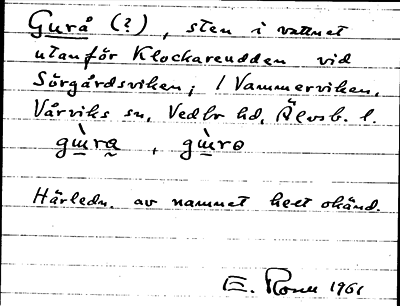 Gurå (?), sten i vattnet
utanför Klockareudden vid
Sörgårdsviken, i Vammerviken.
Vårviks sn, Vedbo hd, Älvsb. l.
gɯ̀ra̰ , gɯ̀rə
Härledn. av namnet helt okänd.
E. 1961